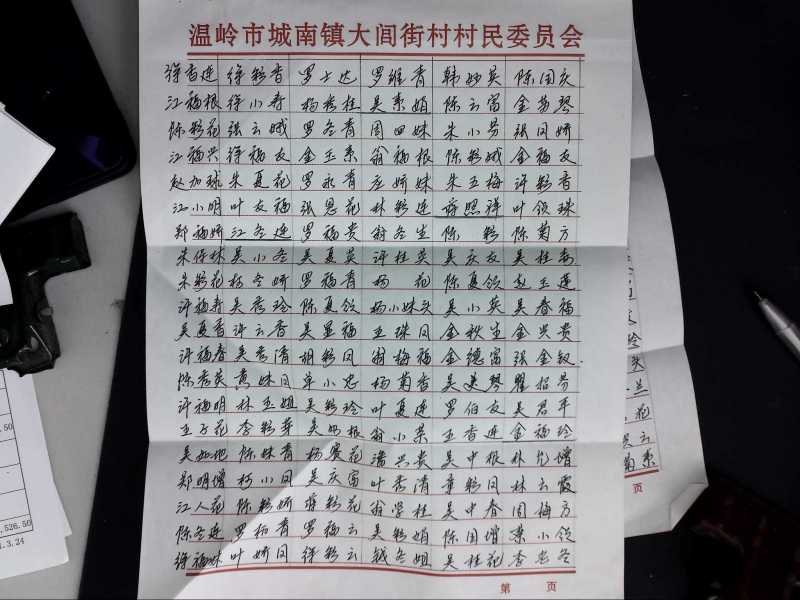 温岭市城南镇大闾街村村民委员会
徐香连 徐彩香 罗士达 罗维青 韩妙英 陈国庆
江福根 徐小寿 杨秀桂 吴素娟 陈云富 金芳琴
陈彩花 张云娥 罗冬青 周四妹 朱小芬 张凤娇
江福兴 徐福友 金玉素 翁福根 陈彩娥 金福友
赵加球 朱夏花 罗永青 庄娇妹 朱玉梅 许彩香
江小明 叶友福 张恩花 林彩连 蒋照祥 叶领珠
郑福娇 江冬连 罗福贵 翁冬生 陈彩 陈菊方
吴小冬 吴夏英 许桂英 吴庆友 吴桂
朱彩花 柯冬娇 罗福青 杨花 陈夏领 赵玉莲
许福寿 吴秀玲 陈夏领 杨小妹头 吴小英 吴春福
吴夏香 许云香 吴显福 王珠凤 金秋生 金兴贵
许福春 吴秀清 胡彩凤 翁梅福 金德富 张金钗
陈秀英 黄妹凤 单小忠 杨菊香 吴美琴 瞿招芬
许福明 林玉姐 吴彩玲 叶夏连 罗伯友 吴君平
王子花 李彩芽 吴如根 翁小菜 王香连 金福玲
吴如地 陈妹青 杨赛花 潘兴贵 吴中根 林允增
郑明增 柯小凤 吴庆富 叶秀清 章彩凤 林云霞
江人花 陈彩娇 蒋彩花 翁学桂 吴中春 周梅方
陈冬连 罗杨青 罗福云 吴彩娟 陈国增 叶小领
徐福妹 叶娇凤 徐彩云 钱冬姐 吴桂花 李忠冬
第 页
页
526.50
.3.24